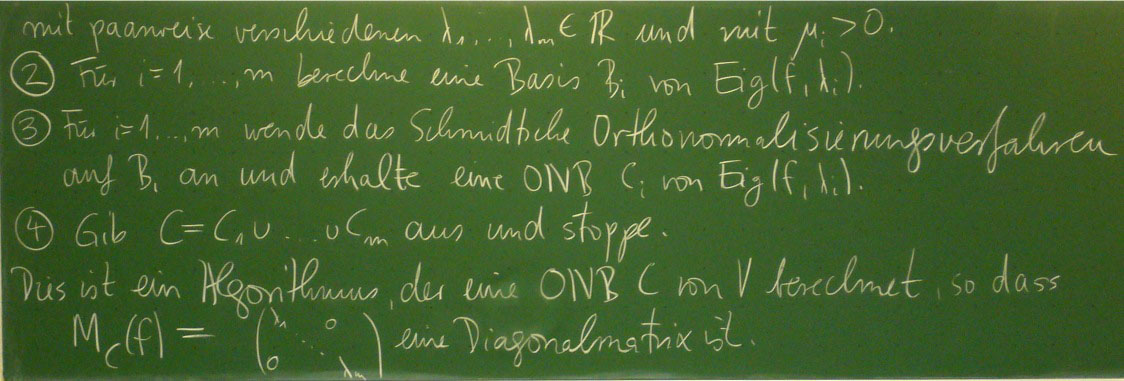 mit paarweise verschiedenen λ₁, ..., λₘ ∈ ℝ und mit μᵢ > 0.
② Für i=1, ..., m berechne eine Basis Bᵢ von Eig(f, λᵢ).
③ Für i=1...,m wende das Schmidtsche Orthonormalisierungsverfahren
auf Bᵢ an und erhalte eine ONB Cᵢ von Eig(f, λᵢ).
④ Gib C = C₁ ∪ ... ∪ Cₘ aus und stoppe.
Dies ist ein Algorithmus, der eine ONB C von V berechnet, so dass
M_C(f) = (λ₁ 0 ⋱ 0 λₘ) eine Diagonalmatrix ist.